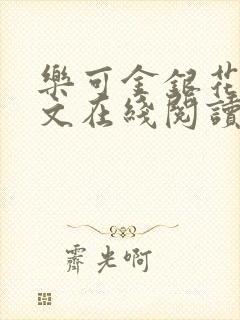 樂可金銀花
文在綫閱讀
霽光啊